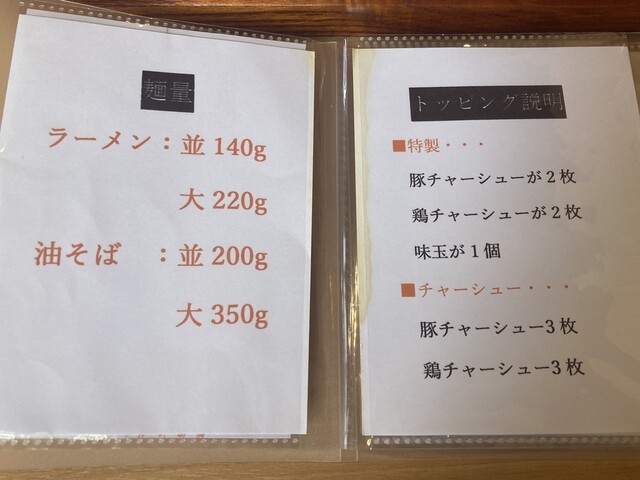 麺量
ラーメン：並 140g
大 220g
油そば ：並 200g
大 350g
トッピング説明
■特製・・・
豚チャーシューが２枚
鶏チャーシューが２枚
味玉が１個
■チャーシュー・・・
豚チャーシュー3枚
鶏チャーシュー3枚